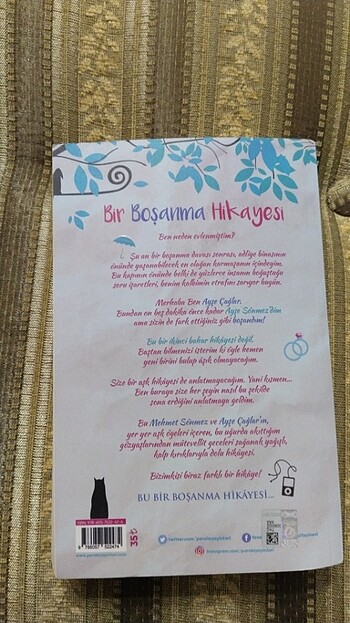 Bir Boşanma Hikayesi
Ben neden evlenmiştim?
Şu an bir boşanma davası sonrası, adliye binasının
önünde yaşanabilecek en olağan karmaşanın içindeyim.
Bu kapının önünde belki de yüzlerce insanın boğuştuğu
soru işaretleri, benim kalbimin etrafını sarıyor bugün.
Merhaba Ben Ayşe Çağlar.
Bundan on beş dakika önce kadar Ayşe Sönmez'dim
ama sizin de fark ettiğiniz gibi boşandım!
Bu bir ikinci bahar hikâyesi değil,
Baştan bilmenizi isterim ki öyle hemen
yeni birini bulup âşık olmayacağım.
Size bir aşk hikâyesi de anlatmayacağım. Yani kısmen...
Ben buraya size her şeyin nasıl bu şekilde
sona erdiğini anlatmaya geldim.
Bu Mehmet Sönmez ve Ayşe Çağlar'ın,
yer yer aşk ögeleri içeren, bu uğurda akıttığım
gözyaşlarından mütevellit geceleri sağanak yağışlı,
kalp kırıklarıyla dolu hikâyesi.
Bizimkisi biraz farklı bir hikâye!
BU BİR BOŞANMA HİKÂYESİ...
35₺